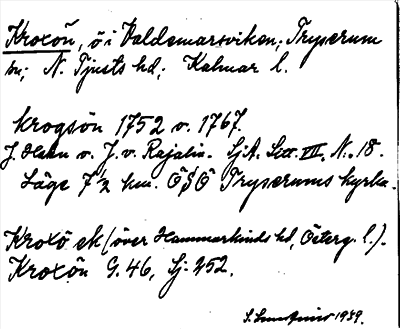 Kroxön, ö i Valdemarsviken; Tryserum
sn; N. Tjusts hd; Kalmar l.
Krogsön 1752 o. 1767.
J. Olsen o. J. v. Rajalin. SjA. Litt. VII, N. 18.
Läge 7 1/2 km. ÖSÖ Tryserums kyrka.
Kroxö ek (över Hammarkinds hd, Österg. l.).
Kroxön G. 46, Sj. 252.
S. 1939.